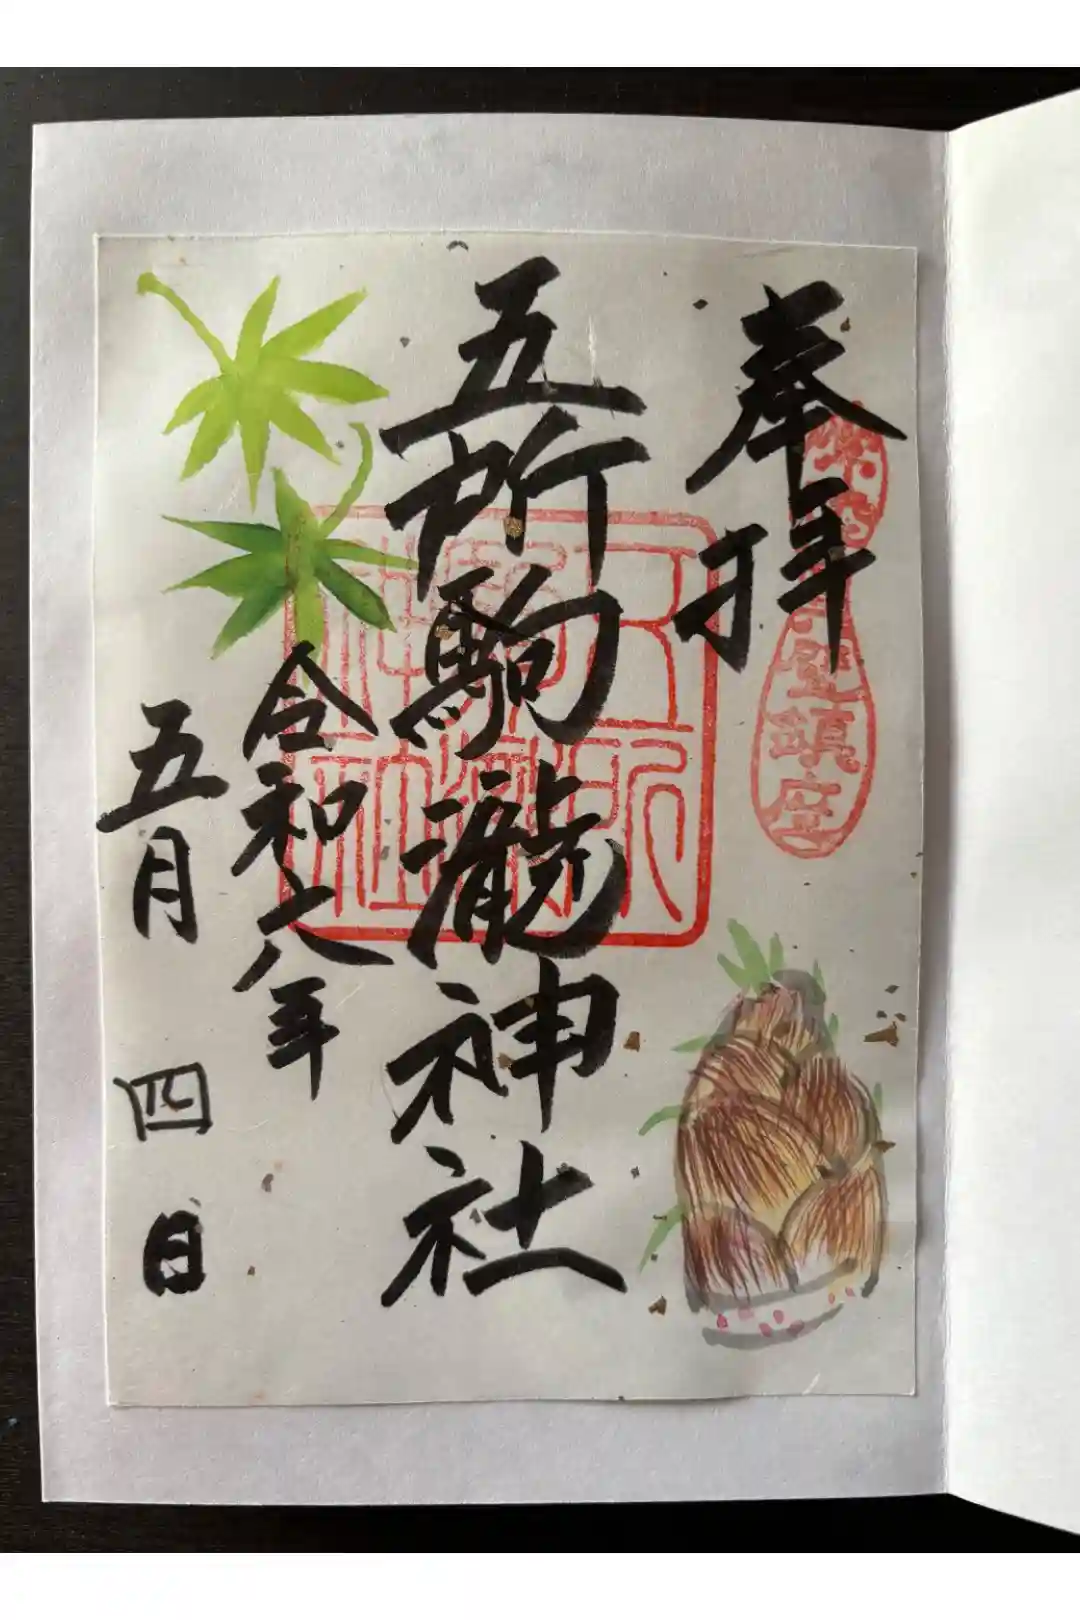 奉拝
壁鎮座
五所駒瀧神社
令和六年
五月四日